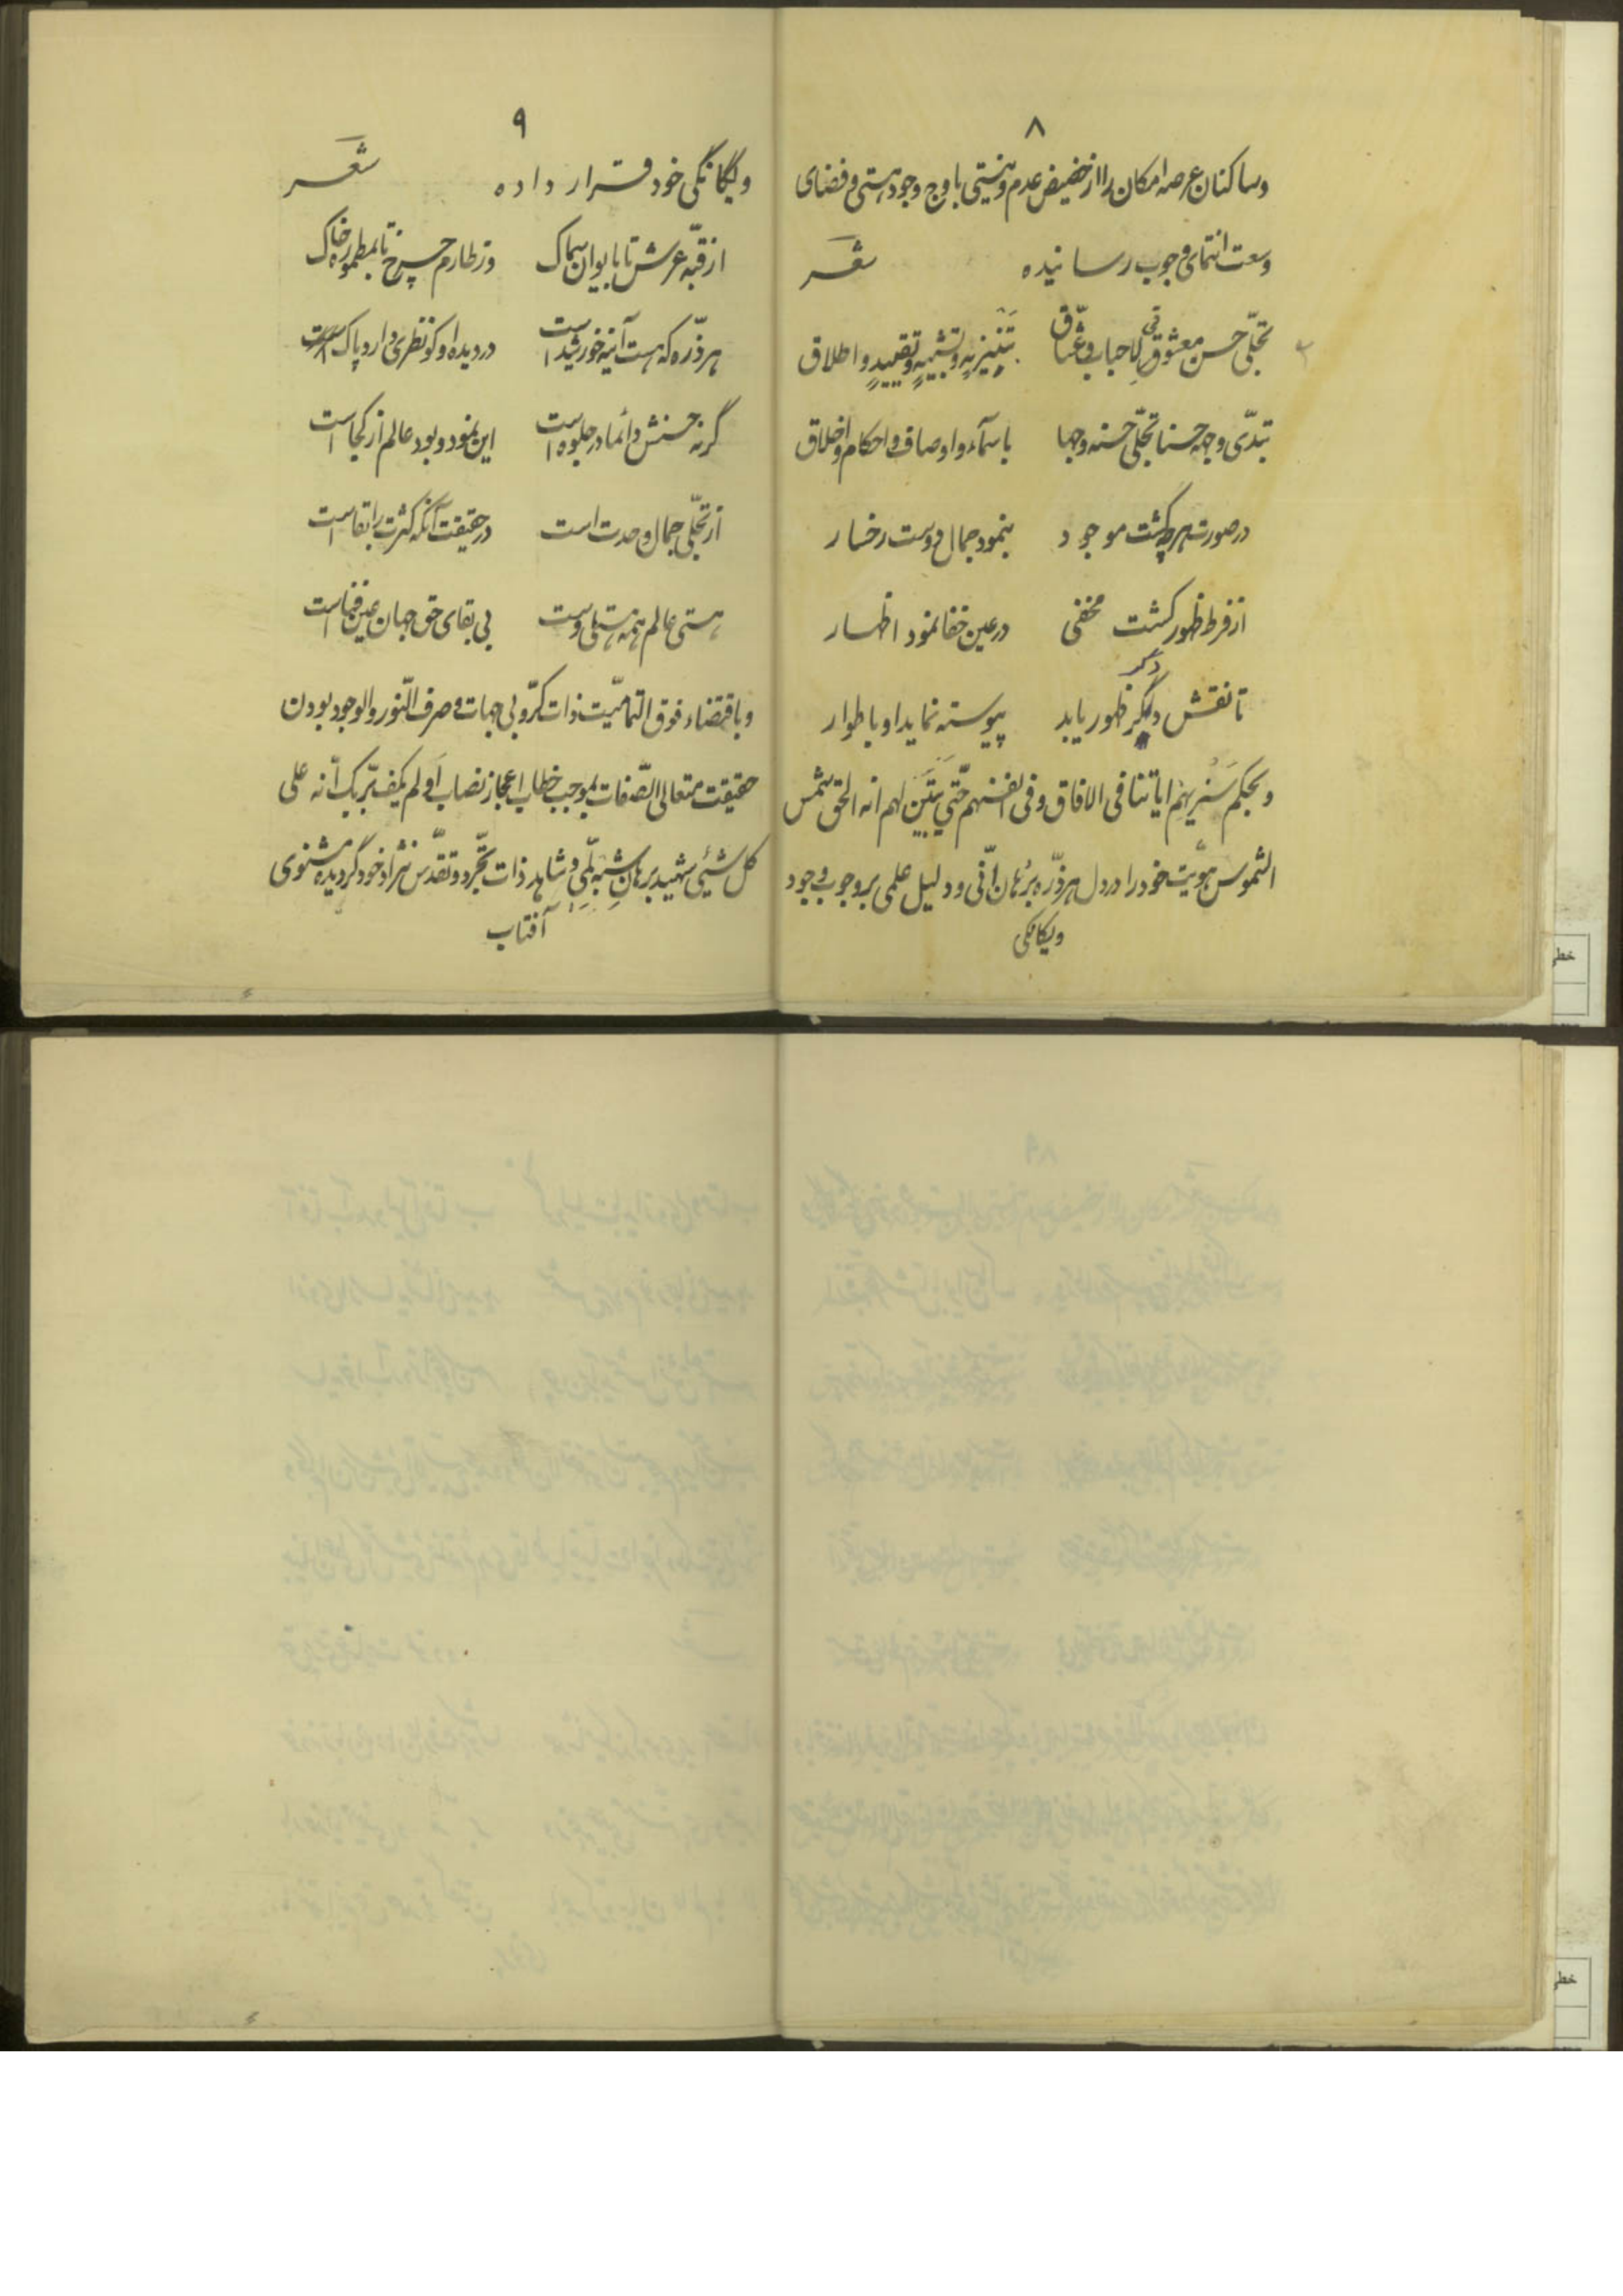 ۸
وساکنان عرصه امکان را از حضیض عدم و نیستی باوج وجود و هستی و فضای
وسعت انتمای وجوب رسانیده شعر
تجلّی حسن معشوقی لاحباب و عشّاق بتنزیه و تشبیه و تقیید و اطلاق
تبدّی وجهه حسنا تجلّی حسنه وجها باسمآء و اوصاف و احکام و اخلاق
در صورت هرچه گشت موجود بنمود جمال دوست رخسار
از فرط ظهور گشت مخفی در عین خفا نمود اظهار
دگر
تا نقش دیگر ظهور یابد پیوسته نماید او باطوار
و بحکم سَنُریهِم ایاتنا فی الافاق و فی انفسهم حتّی یتبیّن لهم انه الحق شمس
الشموس هویّت خود را در دل هر ذرّه برُهان انّی و دلیل علمی بر وجوب وجود
ویگانگی
۹
ویگانگی خود قرار داده شعر
از قبّه عرش تا بایوان سماک وز طارم چرخ تا بمطموره خاک
هر ذرّه که هست آینه خورشید است در دیده او کو نظری دارد پاک است
گرنه حسنش دائما در جلوه است این نمود و بود عالم از کجا است
از تجلّی جمال وحدت است در حقیقت آنکه کثرت را بقا است
هستی عالم همه هستی اوست بی بقای حق جهان عین فنا است
و باقتضاء فوق التمامیّت ذات کرّوبی جهات و صرف النّور والوجود بودن
حقیقت متعالی الصّفات بموجب خطاب اعجاز نصاب اَولم یکف بربّک انّه علی
کل شیئ شهید برهان شبه لمّی و شاهد ذات تجرّد و تقدّس نژاد خود گردیده مثنوی
آفتاب
خطی
خطی